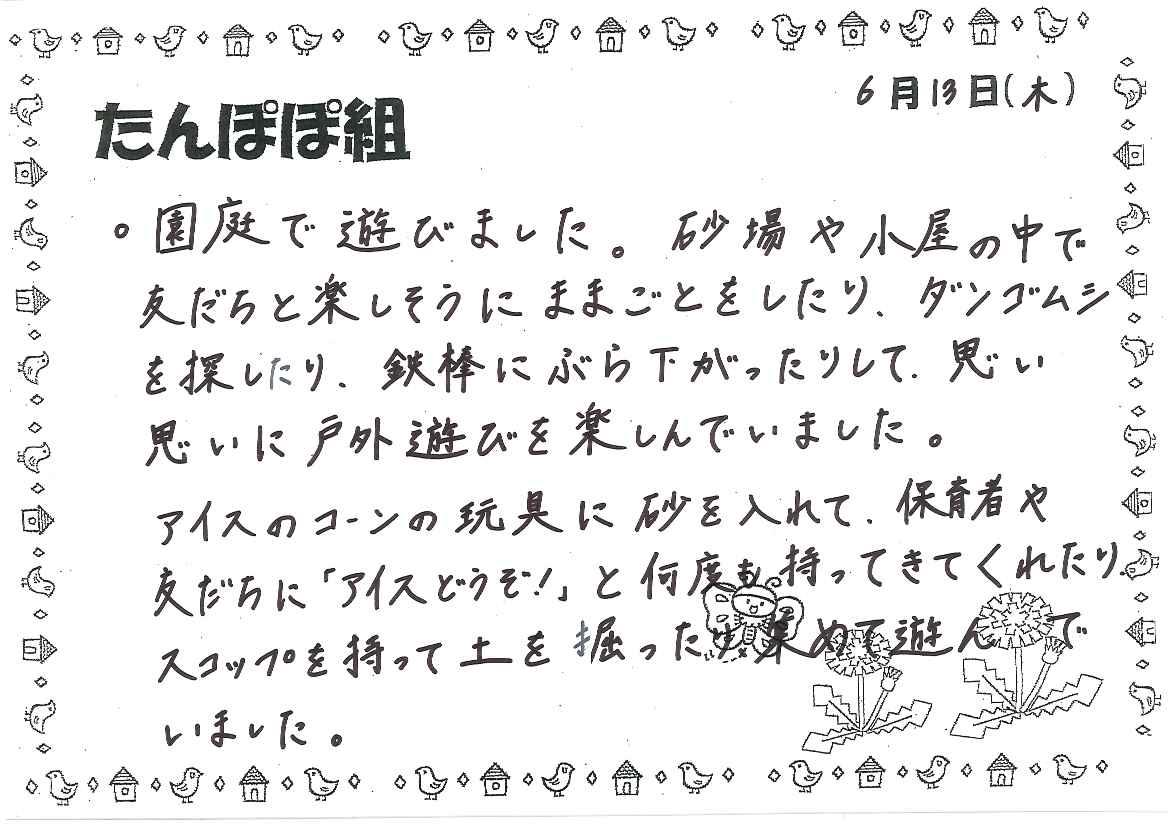 6月13日(木)
たんぽぽ組
。園庭で遊びました。砂場や小屋の中で
友だちと楽しそうにままごとをしたり、ダンゴムシ
を探したり、鉄棒にぶら下がったりして、思い
思いに戸外遊びを楽しんでいました。
アイスのコーンの玩具に砂を入れて、保育者や
友だちに「アイスどうぞ!」と何度も持ってきてくれたり、
スコップを持って土を掘ったり集めて遊んで
いました。